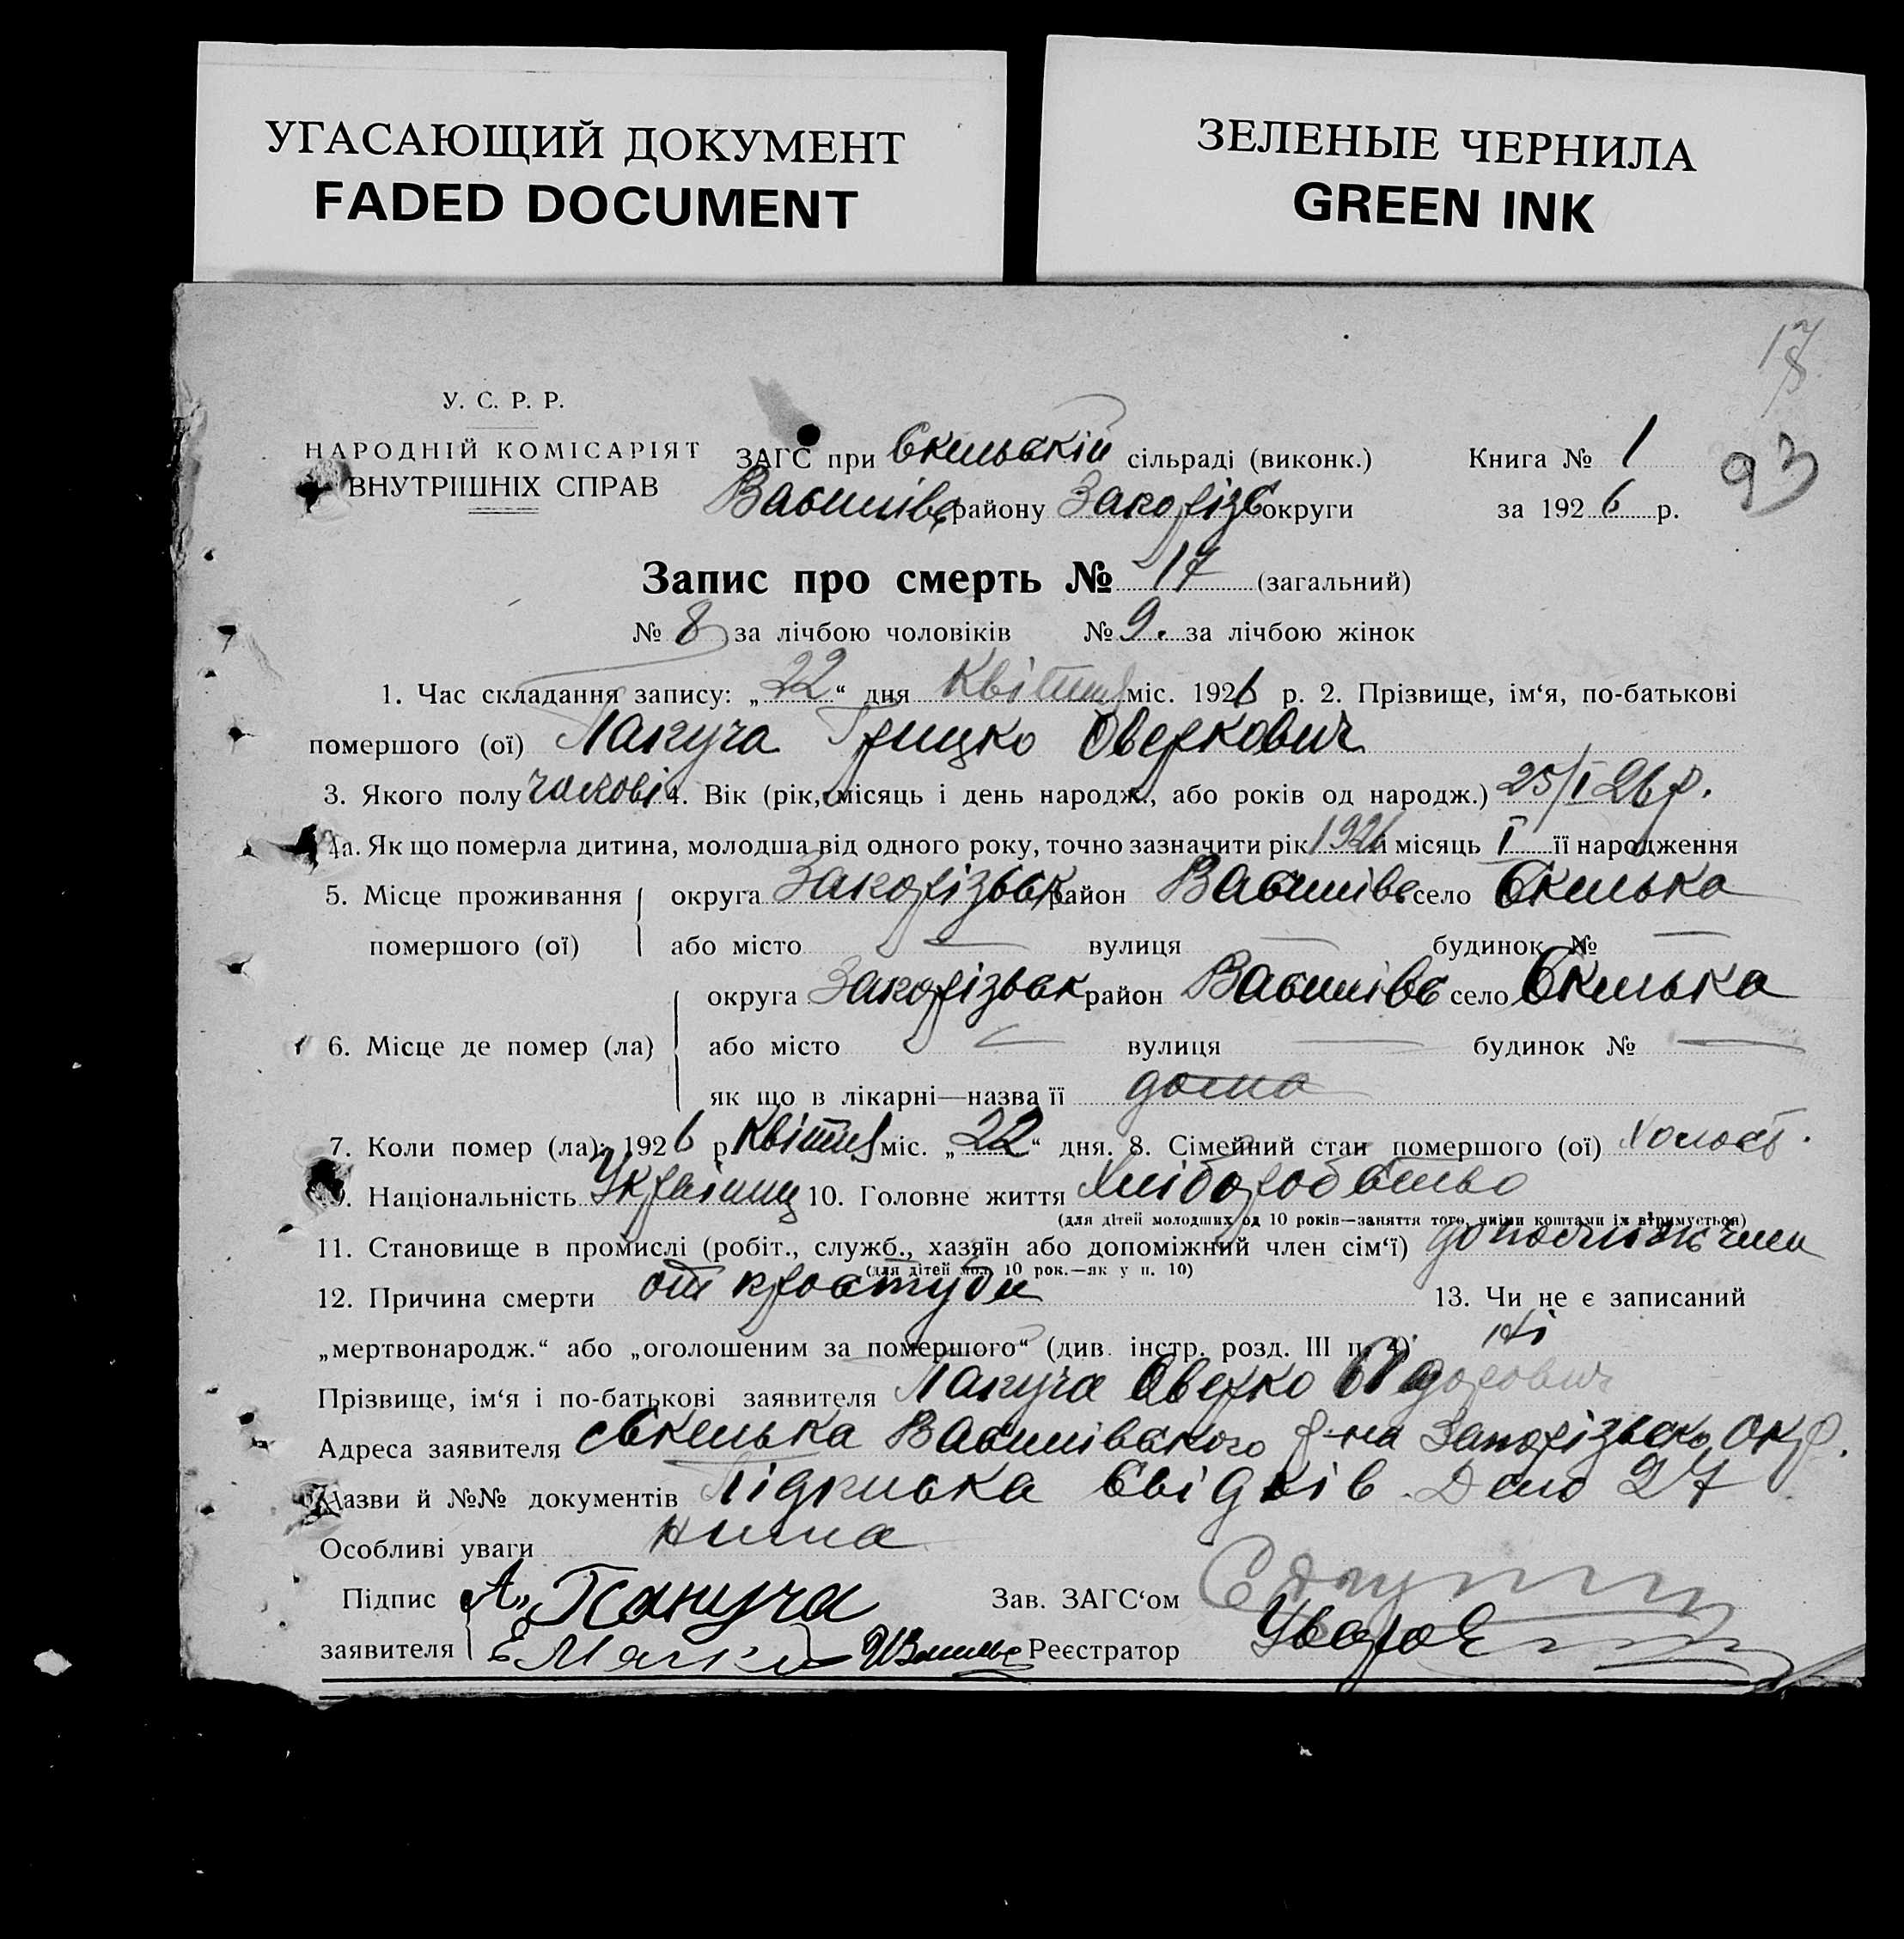 УГАСАЮЩИЙ ДОКУМЕНТ
FADED DOCUMENT
ЗЕЛЕНЫЕ ЧЕРНИЛА
GREEN INK
17
93
У. С. Р. Р.
НАРОДНІЙ КОМІСАРІЯТ
ВНУТРІШНІХ СПРАВ
ЗАГС при Скельській сільраді (виконк.)
Книга № 1
Василівс району Запорізь округи
за 1926 р.
Запис про смерть № 17 (загальний)
№ 8 за лічбою чоловіків № 9. за лічбою жінок
1. Час складання запису: „22“ дня Квітня міс. 1926 р. 2. Прізвище, ім‘я, по-батькові
помершого (ої) Пануча Грицко Оверкович
3. Якого полу чолові 4. Вік (рік, місяць і день народж., або років од народж.) 25/I 26 р.
4а. Як що померла дитина, молодша від одного року, точно зазначити рік 1926 й місяць I її народження
5. Місце проживання округа Запорізьк район Василівс село Скелька
помершого (ої) або місто — вулиця — будинок № —
округа Запорізьк район Василівс село Скелька
6. Місце де помер (ла) або місто — вулиця — будинок № —
як що в лікарні—назва її дома
7. Коли помер (ла): 1926 р. Квітня міс. „22“ дня. 8. Сімейний стан помершого (ої) холост.
9. Національність Українц 10. Головне життя Хліборобство
(для дітей молодших од 10 років—заняття того, чиїми коштами їх втримується)
11. Становище в промислі (робіт., служб., хазяїн або допоміжний член сім‘ї) допоміж член
(для дітей мол. 10 рок.—як у п. 10)
12. Причина смерти от простуди 13. Чи не є записаний
„мертвонародж.“ або „оголошеним за помершого“ (див. інстр. розд. III п. 4) ні
Прізвище, ім‘я і по-батькові заявителя Пануча Оверко
Адреса заявителя с Скелька Василівського р-на Запорізьк окр.
Назви й №№ документів Підписка свідків Дело 27
Особливі уваги нима
Підпис Пануча Зав. ЗАГС‘ом
заявителя Реєстратор Уваров